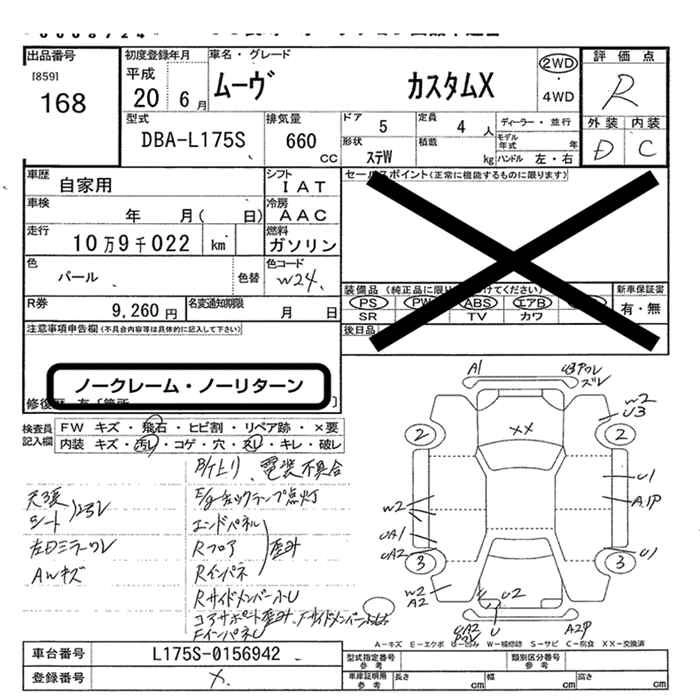 出品番号
[859]
168
初度登録年月
平成
20 6月
車名・グレード
ムーヴ カスタムX
2WD
・
4WD
評価点
R
外装 内装
D C
型式
DBA-L175S
排気量
660
cc
ドア 5
定員 4 人
ディーラー・並行
形状 ステW
積載 kg
モデル年式 年
ハンドル 左・右
車歴
自家用
シフト
IAT
車検
年 月( 日)
冷房
AAC
走行
10万9千022 km
燃料
ガソリン
色
パール
色替
色コード
W24
R券
9,260円
名変通知期限
月 日
セールスポイント(正常に機能するものに限ります)
装備品(純正品に限り けてください)
新車保証書
PS PW ABS エアB
SR TV カワ
有・無
後日品
注意事項申告欄(不具合内容等は具体的に記入して下さい)
ノークレーム・ノーリターン
検査員記入欄
FW キズ・飛石・ヒビ割・リペア跡・×要
内装 キズ・汚レ・コゲ・穴・スレ・キレ・破レ
電装不具合
E/gチェックランプ点灯
天張
シート
エンドパネル
Rフロア
左ドミラーワレ
AWキズ
Rインパネ
Rサイドメンバー小U
A1
XX
W2
U3
2
2
U1
A1P
W2
UA1
UA2
3
3
U1
W2
A2
U2
U
A2P
A-キズ E-エクボ U-凹み W-補修跡 S-サビ C-腐食 XX-交換済
車台番号
L175S-0156942
登録番号
×
型式指定番号
参考
類別区分番号
参考
車庫証明用
参考
長さ cm
幅 cm
高さ cm